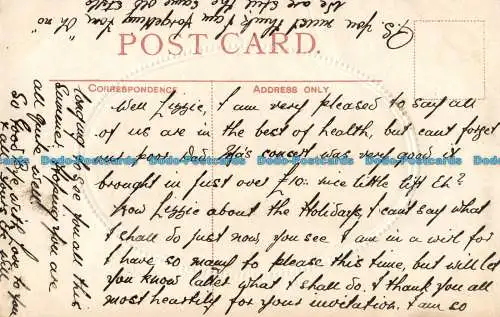 P.S. You must think I am forgetting You "Oh no"
We are still the same old style
POST CARD.
CORRESPONDENCE
ADDRESS ONLY
Well Lizzie, I am very pleased to say all
of us are in the best of health, but can't forget
our poor Dad. concert was very good it
brought in just over £10. nice little lift Eh?
Now Lizzie about the Holidays, I can't say what
I shall do just now, you see I am in a whirl for
I have so many to please this time, but will let
you know later what I shall do. I thank you all
most heartily for your invitation. I am so
longing to see you all this
Summer. Hoping you are
all quite well
So Good Bye with Love to you
& all Yours as ever
www.bibliotecanatalie.com